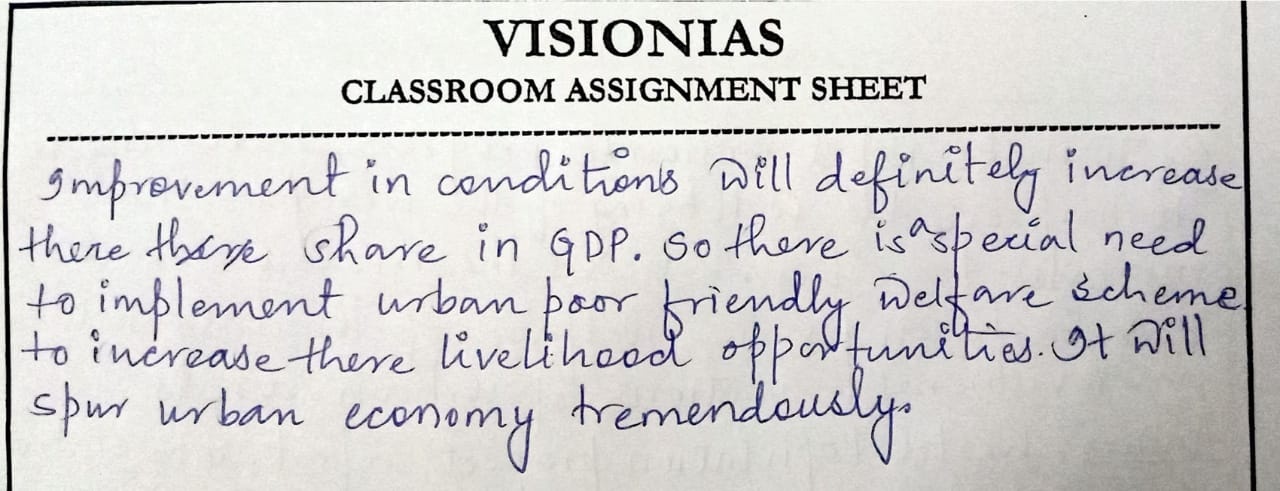 VISIONIAS
CLASSROOM ASSIGNMENT SHEET
Improvement in conditions will definitely increase
there share in GDP. So there is a special need
to implement urban poor friendly welfare scheme
to increase there livelihood opportunities. It will
spur urban economy tremendously.